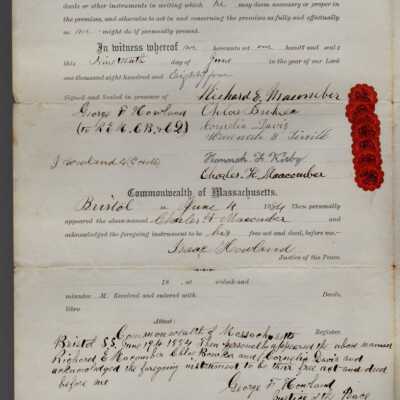 deals or other instruments in writing which he may deem necessary or proper in
the premises, and otherwise to act in and concerning the premises as fully and effectually
as we might do if personally present.
In witness whereof we hereunto set our hands and seals
this day of June in the year of our Lord
one thousand eight hundred and Eighty four
Signed and Sealed in presence of
Richard E. Macomber
George F Howland
Chloe
(to R.E.M, C.B, & C.D.)
Cornelia Davis
Hannah F. Kirby
Charles H. Macomber
Commonwealth of Massachusetts.
Bristol ss June 4 1884 Then personally
appeared the above-named Charles H Macomber and
acknowledged the foregoing instrument to be his free act and deed, before me,—
Isaac Howland
Justice of the Peace.
18 , at o'clock and
minutes M. Received and entered with Deeds,
libro
Attest: Register.
Bristol SS. Commonwealth of Massachusetts
June 19th 1884 Then personally appeared the above named
Richard E Macomber Chloe and Cornelia Davis and
acknowledged the foregoing instrument to be their free act and deed
before me
George F Howland
Justice of the Peace